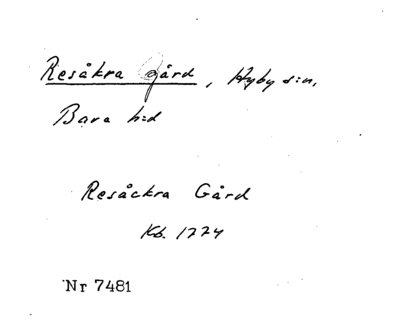 Resåkra gård, Hyby s:n,
Bara h:d
Resåckra Gård
Kb. 1774
Nr 7481